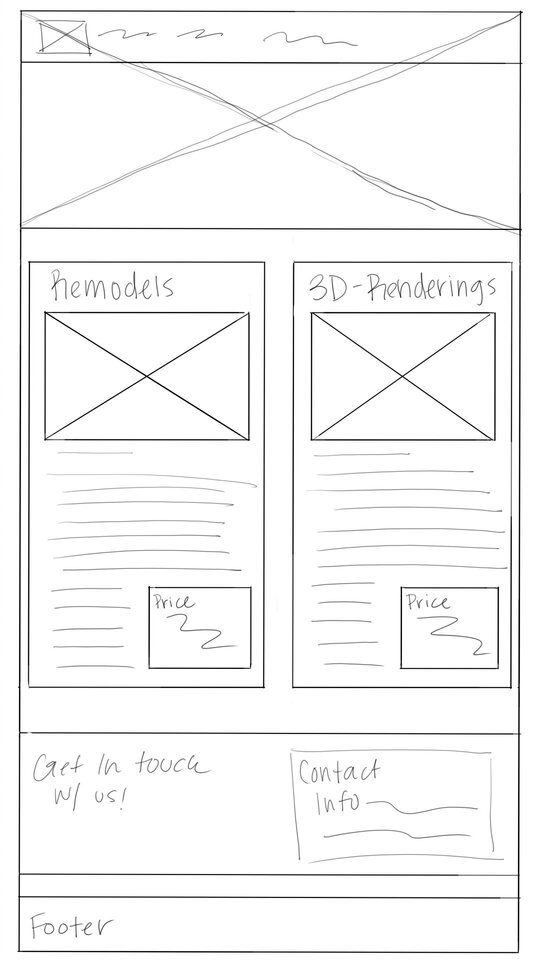 Remodels
3D-Renderings
Price
Price
Get in touch
w/ us!
Contact
Info
Footer